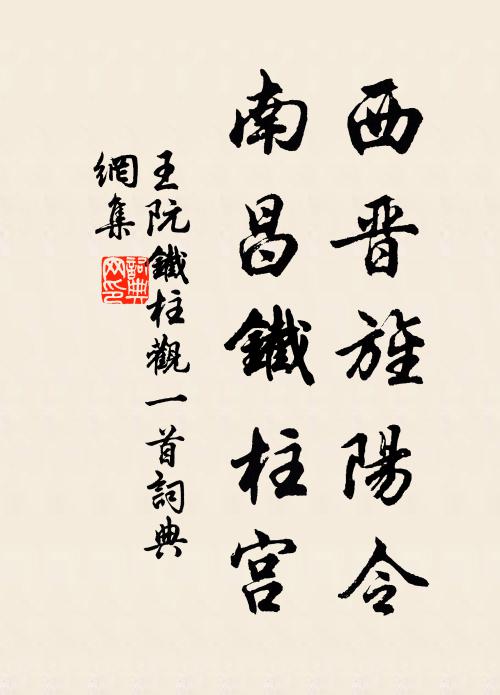 西晋旌陽令
南昌鐵柱宫
王阮鐵柱觀一首詞典
網集
詞典
网印